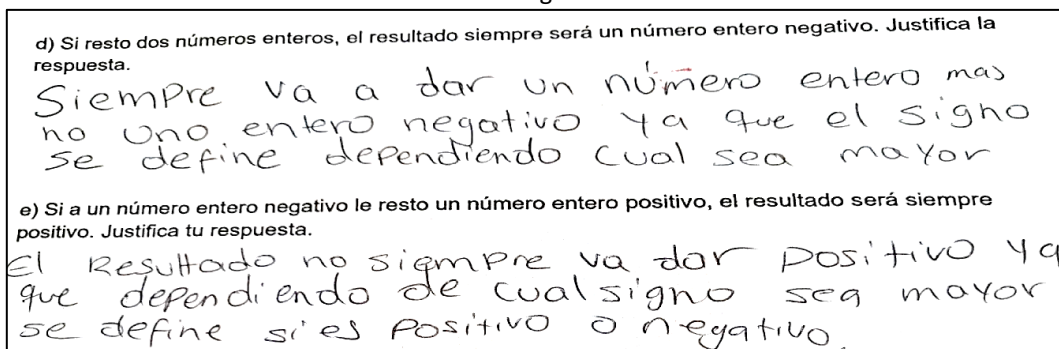 d) Si resto dos números enteros, el resultado siempre será un número entero negativo. Justifica la
respuesta.
Siempre va a dar un número entero mas
no uno entero negativo ya que el signo
se define dependiendo cual sea mayor
e) Si a un número entero negativo le resto un número entero positivo, el resultado será siempre
positivo. Justifica tu respuesta.
El Resultado no siempre va dar positivo ya
que dependiendo de cual signo sea mayor
se define si es positivo o negativo.